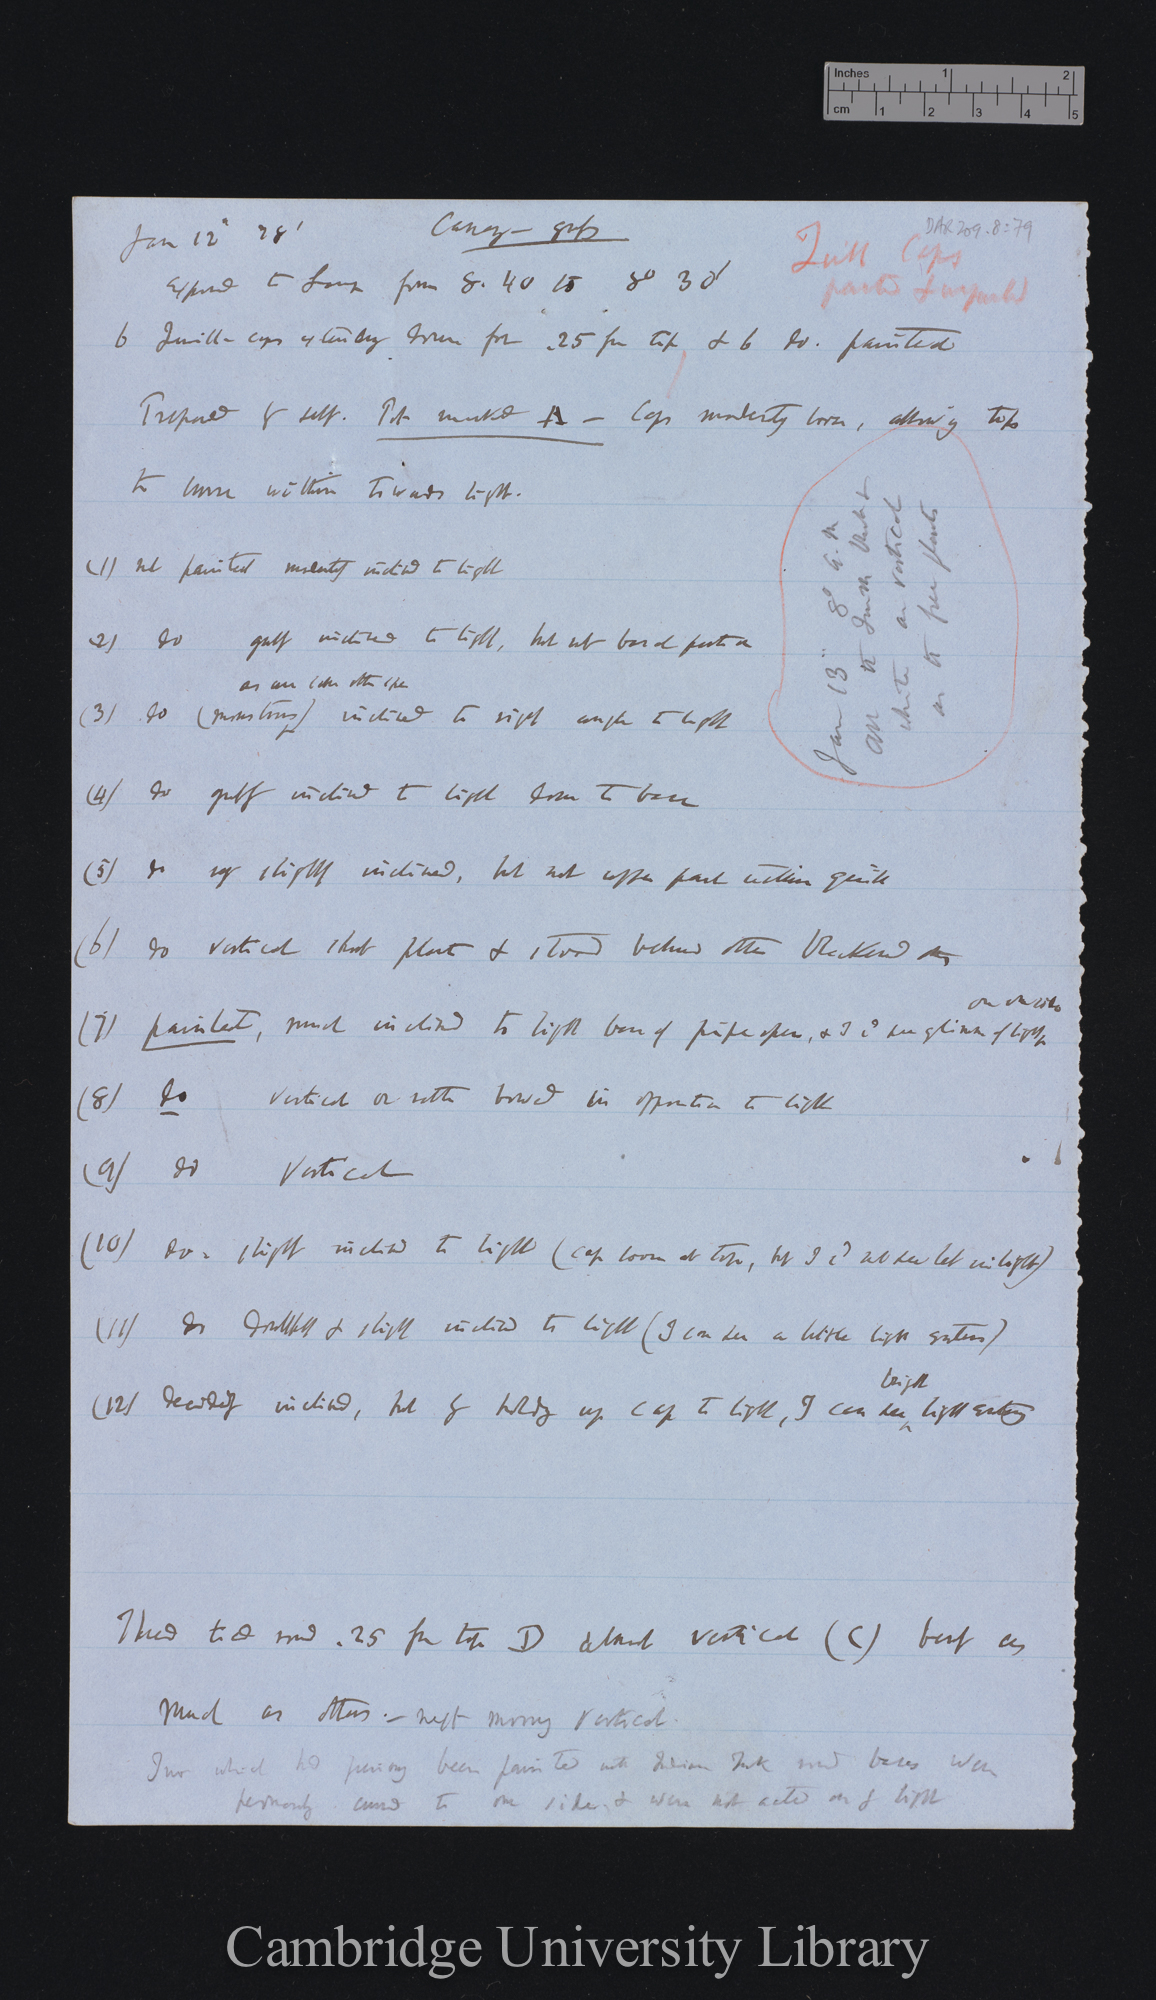 Inches 1 2
cm 1 2 3 4 5
DAR 209.8:79
Jan 12° 28'
Canary-grass
Quill Caps
painted & unpainted
exposed to Lamp from 8° 40 to 8° 30'
6 Quill-caps extending down for .25 from tip & 6 do. painted
Prepared by self. Pot marked A — Caps moderately loose, allowing tops
to curve within towards light.
(1) not painted moderately inclined to light
(2) do greatly inclined to light, but not basal portion
(3) do (monstrous) inclined to right angle to light
(4) do greatly inclined to light down to base
(5) do very slightly inclined, but not upper part within quill
(6) do vertical short plant & stood behind other blackened
(7) painted, much inclined to light base of pipe open, & I cd see glimm of light
on one side
(8) do vertical or rather bowed in opposition to light
(9) do Vertical
(10) do – slightly inclined to light (cap loose at top, but I cd not see let in light)
(11) do doubtfully & slightly inclined to light (I can see a little light enters)
bright
(12) decidedly inclined, but by holding up cap to light, I can see light entering
Jan 13th 8° a.m
all the
white are vertical
as the free plants
Thread tied round .25 from top D almost vertical (C) bent as
Much as others. — next morning vertical.
Two which had previously been painted with Indian Ink round bases were
permanently curved to one side, & were not acted on by light
Cambridge University Library